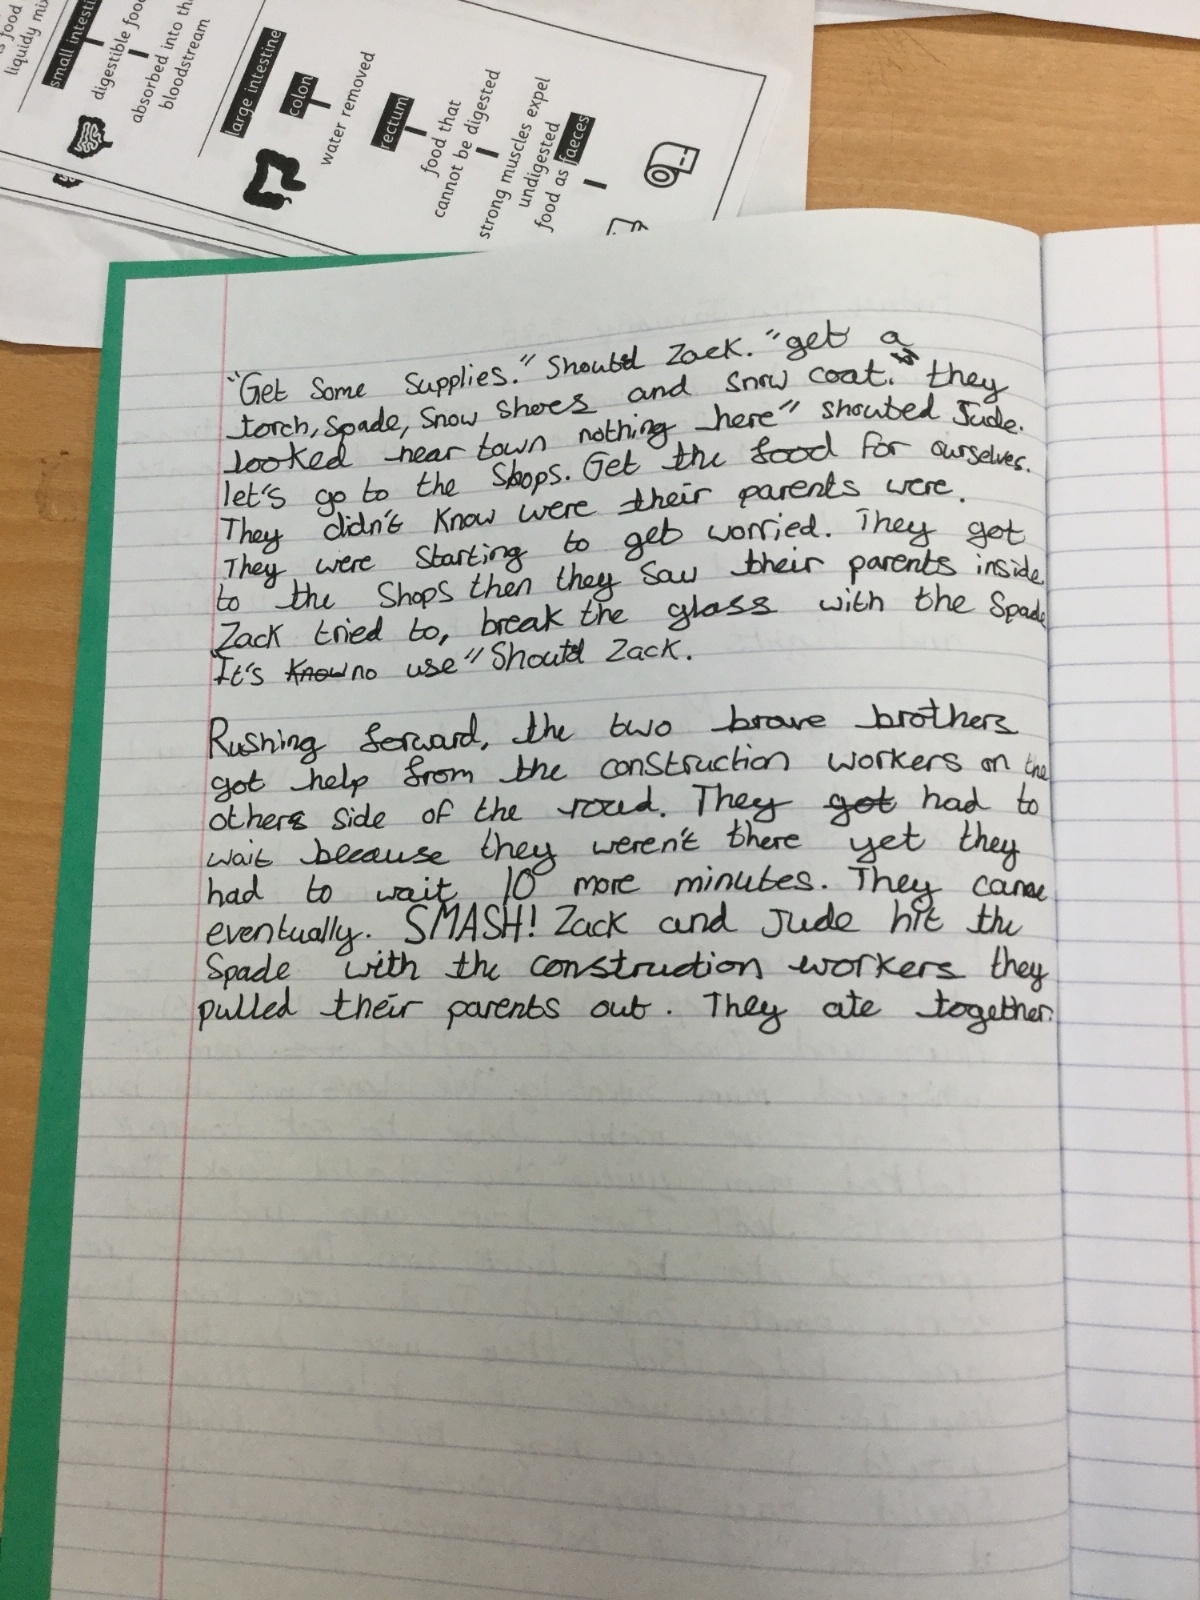 s food
liquidy mix
small intesti
digestible food
absorbed into th
bloodstream
large intestine
colon
water removed
rectum
food that
cannot be digested
strong muscles expel
undigested
food as faeces
"Get Some Supplies." Shouted Zack. "get a
torch, Spade, Snow Shoes and snow coat." they
looked near town nothing here" shouted Jude.
let's go to the Shops. Get the food for ourselves.
They didn't Know were their parents were.
They were Starting to get worried. They got
to the Shops then they Saw their parents inside
Zack tried to, break the glass with the Spade
"It's know no use" Shouted Zack.
Rushing forward, the two brave brothers
got help from the construction workers on the
others side of the road. They got had to
wait because they weren't there yet they
had to wait 10 more minutes. They came
eventually. SMASH! Zack and Jude hit the
Spade with the construction workers they
pulled their parents out. They ate together.